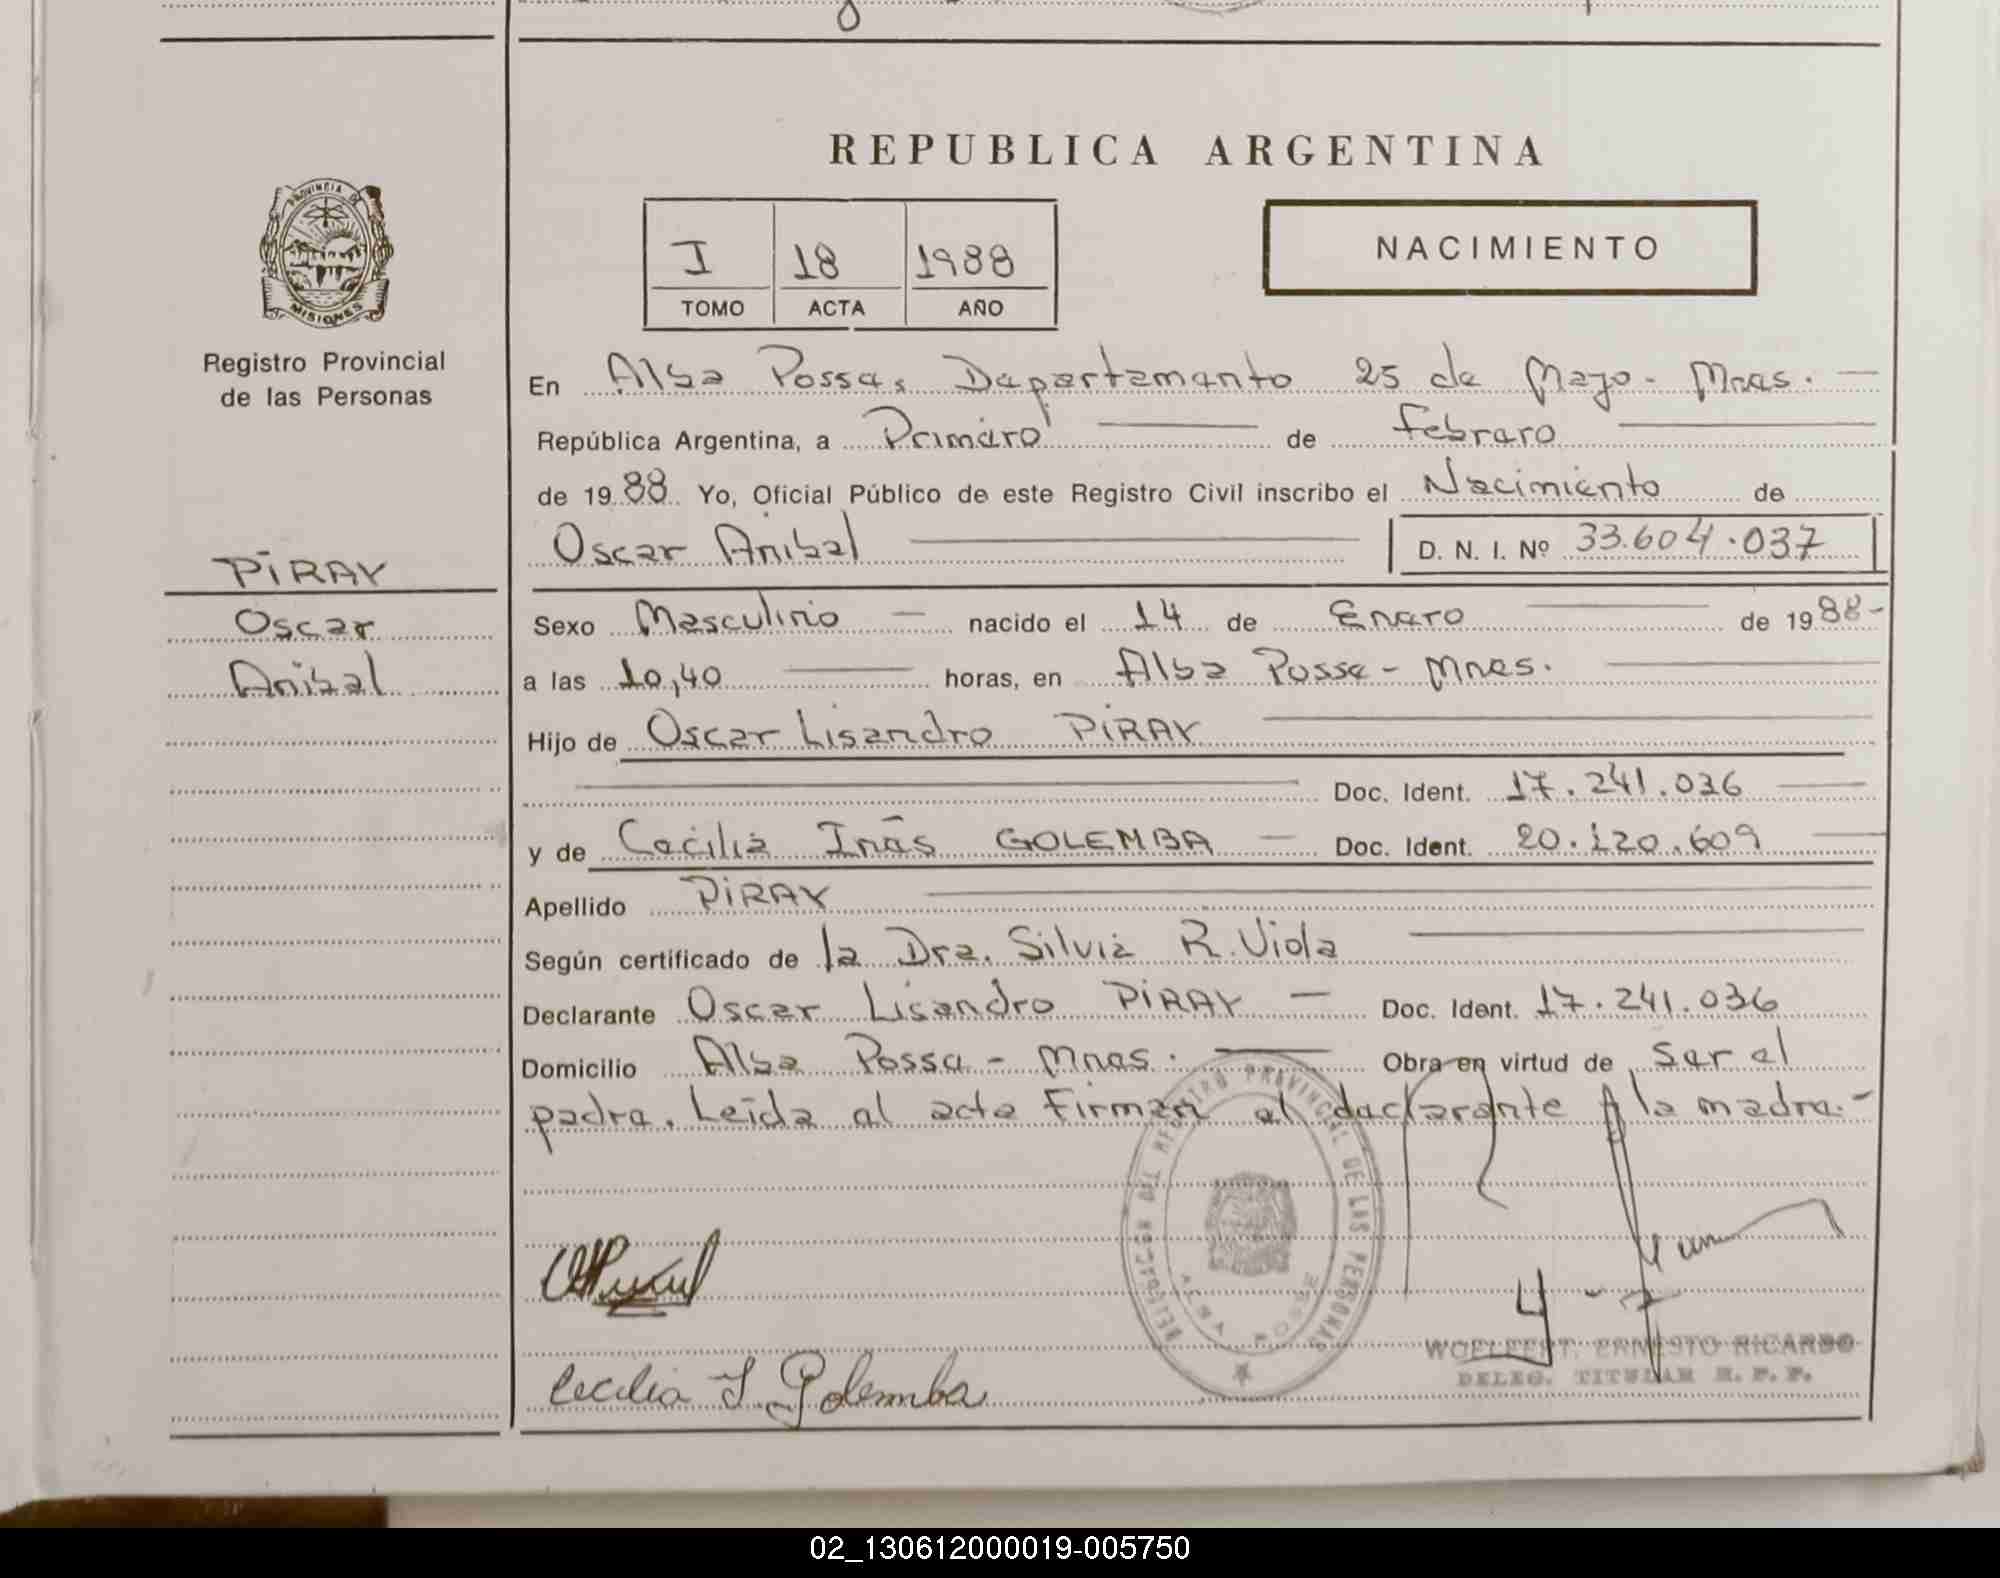 REPUBLICA ARGENTINA
PROVINCIA DE
MISIONES
Registro Provincial
de las Personas
I 18 1988
TOMO ACTA AÑO
NACIMIENTO
En Alba Posse, Departamento 25 de Mayo - Mnes. —
República Argentina, a Primero — de febrero —
de 1988 Yo, Oficial Público de este Registro Civil inscribo el Nacimiento de
Oscar Anibal — D. N. I. Nº 33.604.037
PIRAY
Oscar
Anibal
Sexo Masculino — nacido el 14 de Enero — de 1988-
a las 10,40 — horas, en Alba Posse - Mnes. —
Hijo de Oscar Lisandro PIRAY —
— Doc. Ident. 17.241.036 —
y de Cecilia Inés GOLEMBA — Doc. Ident. 20.120.609 —
Apellido PIRAY —
Según certificado de la Dra. Silvia R. Viola —
Declarante Oscar Lisandro PIRAY — Doc. Ident. 17.241.036
Domicilio Alba Posse - Mnes. — Obra en virtud de ser el
padre. Leída el acta Firman el declarante y la madre.-
DELEGACION DEL REGISTRO PROVINCIAL DE LAS PERSONAS
ALBA POSSE
Cecilia I. Golemba
WOELFERT, ERNESTO RICARDO
DELEG. TITULAR R. P. P.
02_130612000019-005750